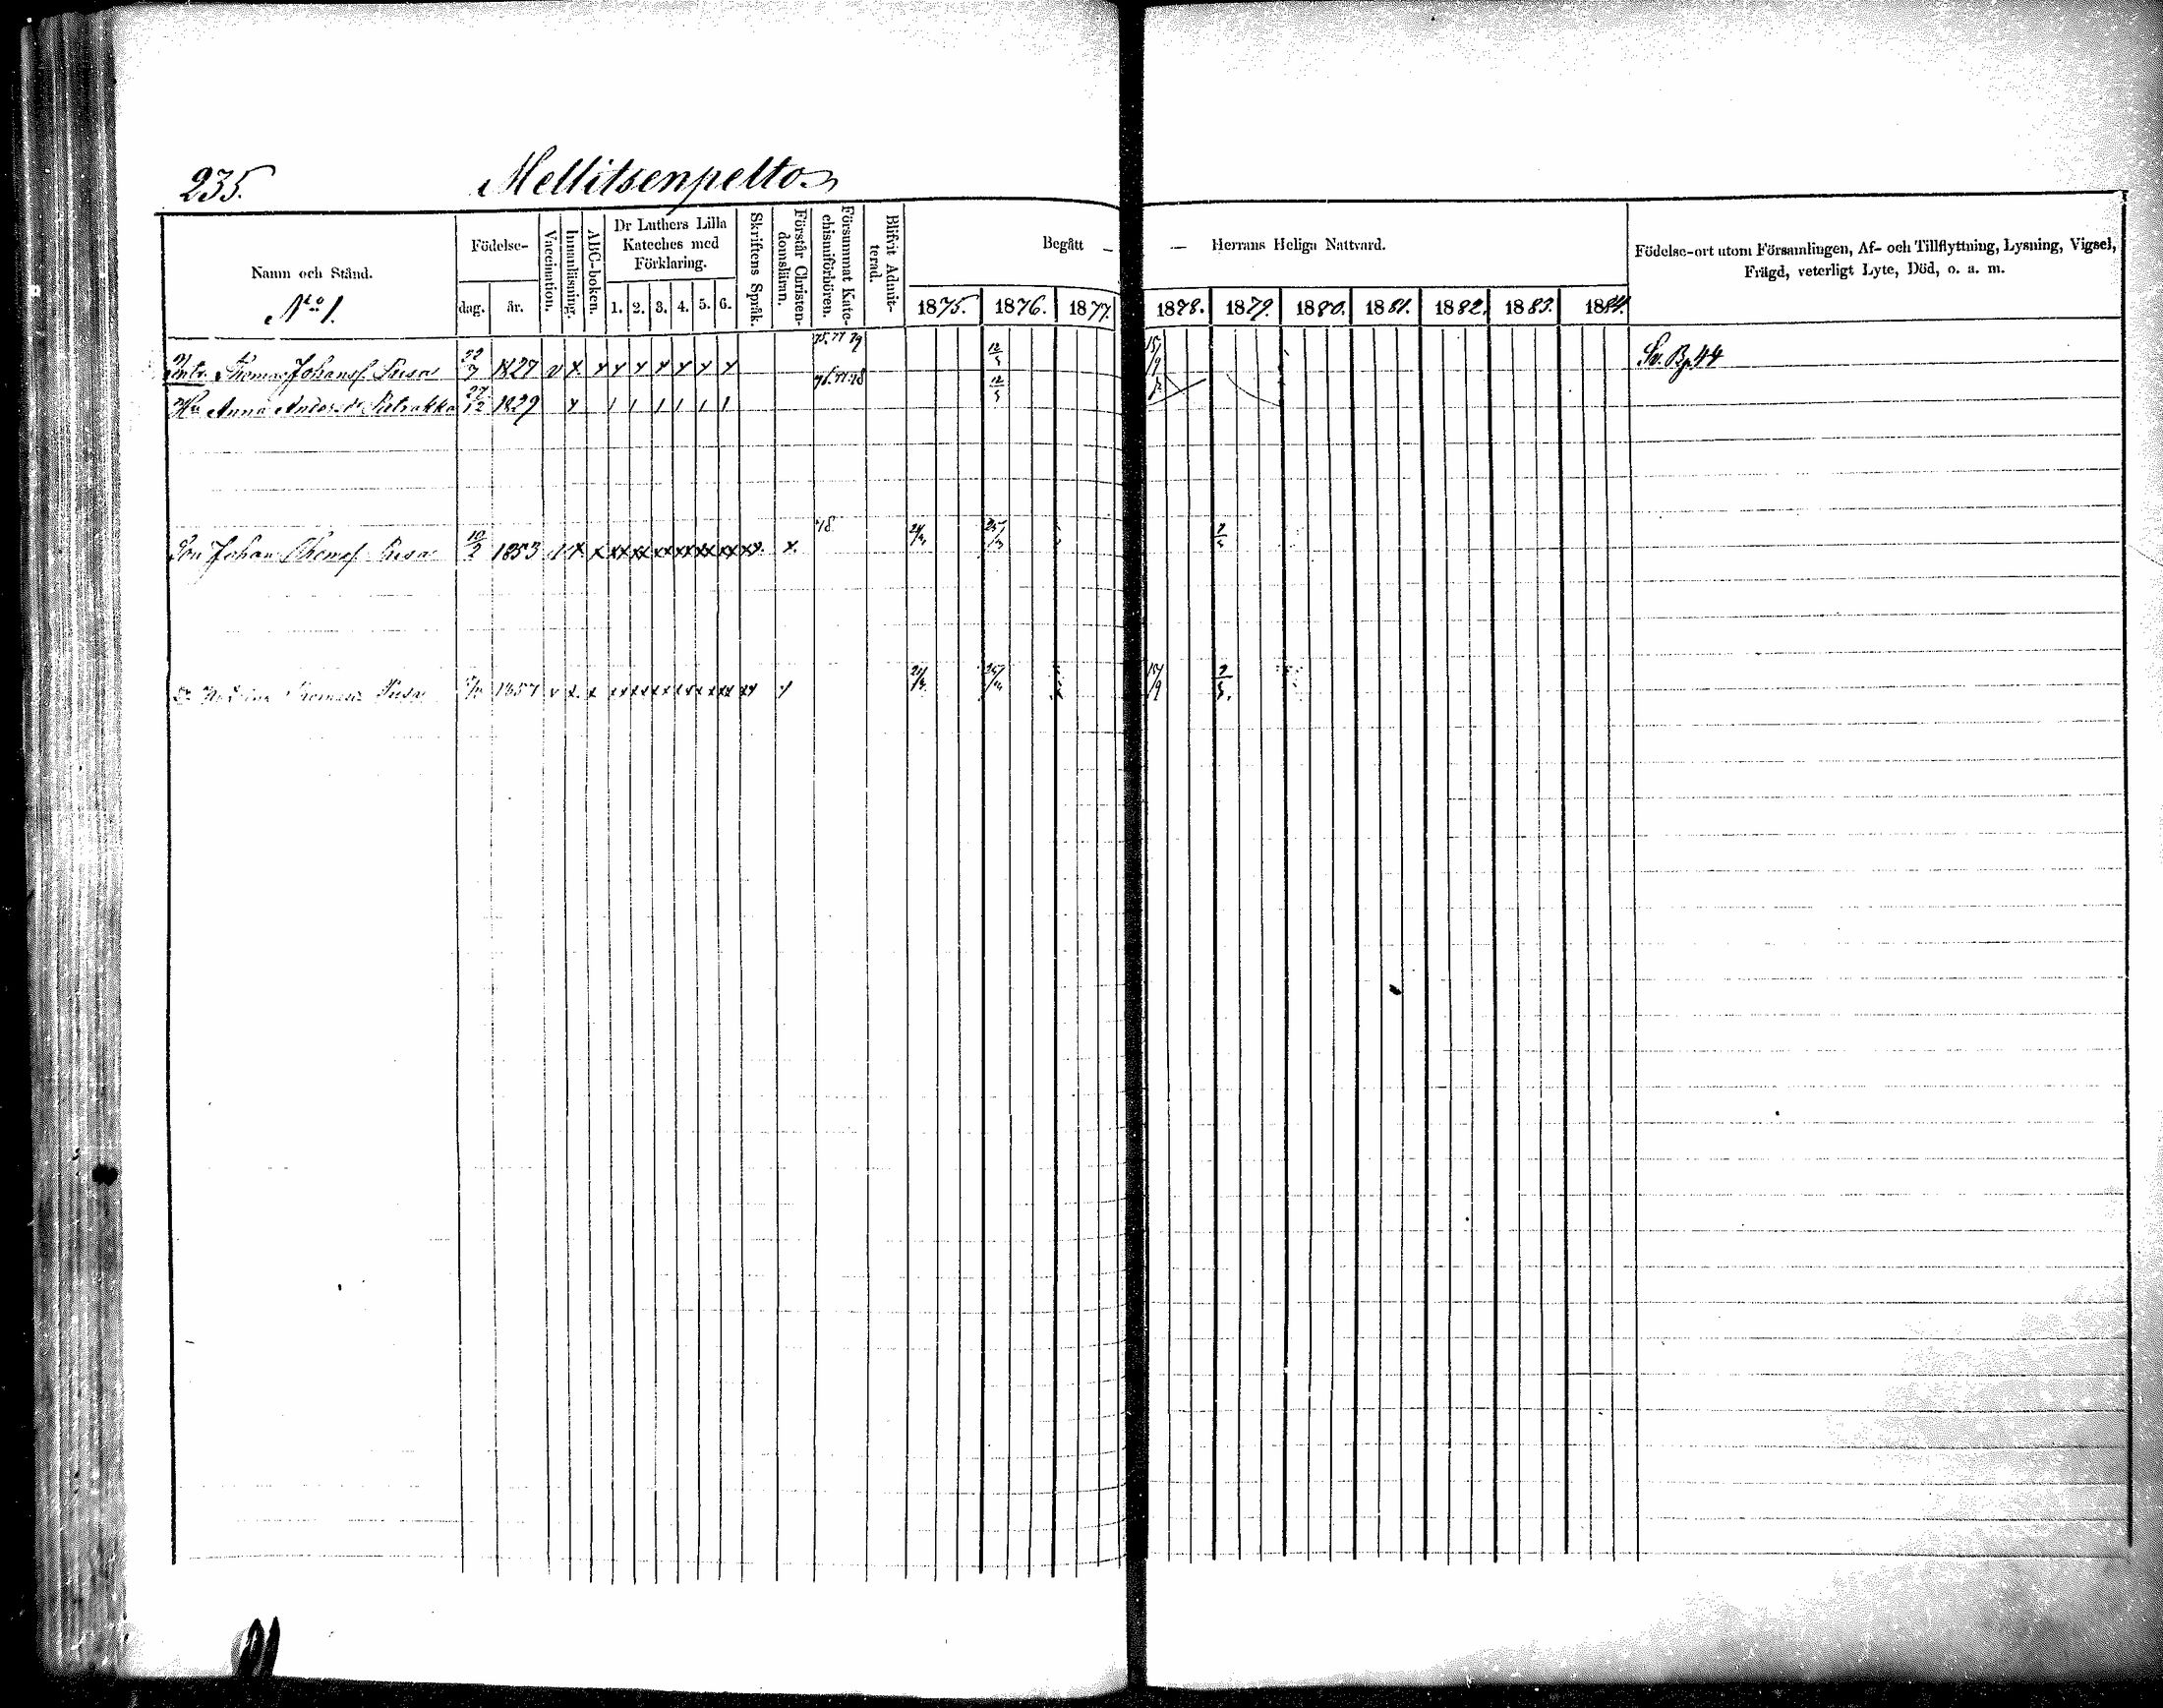 235. Mellitsenpelto
Namn och Stånd.
No 1.
Födelse-
dag. år.
Vaccination.
Innanläsning.
ABC-boken.
Dr Luthers Lilla
Kateches med
Förklaring.
1. 2. 3. 4. 5. 6.
Skriftens Språk.
Förstår Christen-
domslämn.
Försummat Kate-
chismiförhören.
Blifvit Admit-
terad.
Begått — — Herrans Heliga Nattvard.
1875. 1876. 1877. 1878. 1879. 1880. 1881. 1882. 1883. 1884.
Födelse-ort utom Församlingen, Af- och Tillflyttning, Lysning, Vigsel,
Frägd, veterligt Lyte, Död, o. a. m.
Thomas Johanss. Pusa 22/7 1827 v x x x x x x x x 75. 77 79 12/5 15/9
Hu Anna Anders.dr 27/12 1829 x 76. 77. 78 12/5
Son Johan Thomss. Pusa 10/2 1853 x x xx xx xx xx xx xx xx. x. 78. 25/3 2/5
Thomasdr Pusa 1857 v x x xx xx xx xx xx xx xx 15/9 2/5